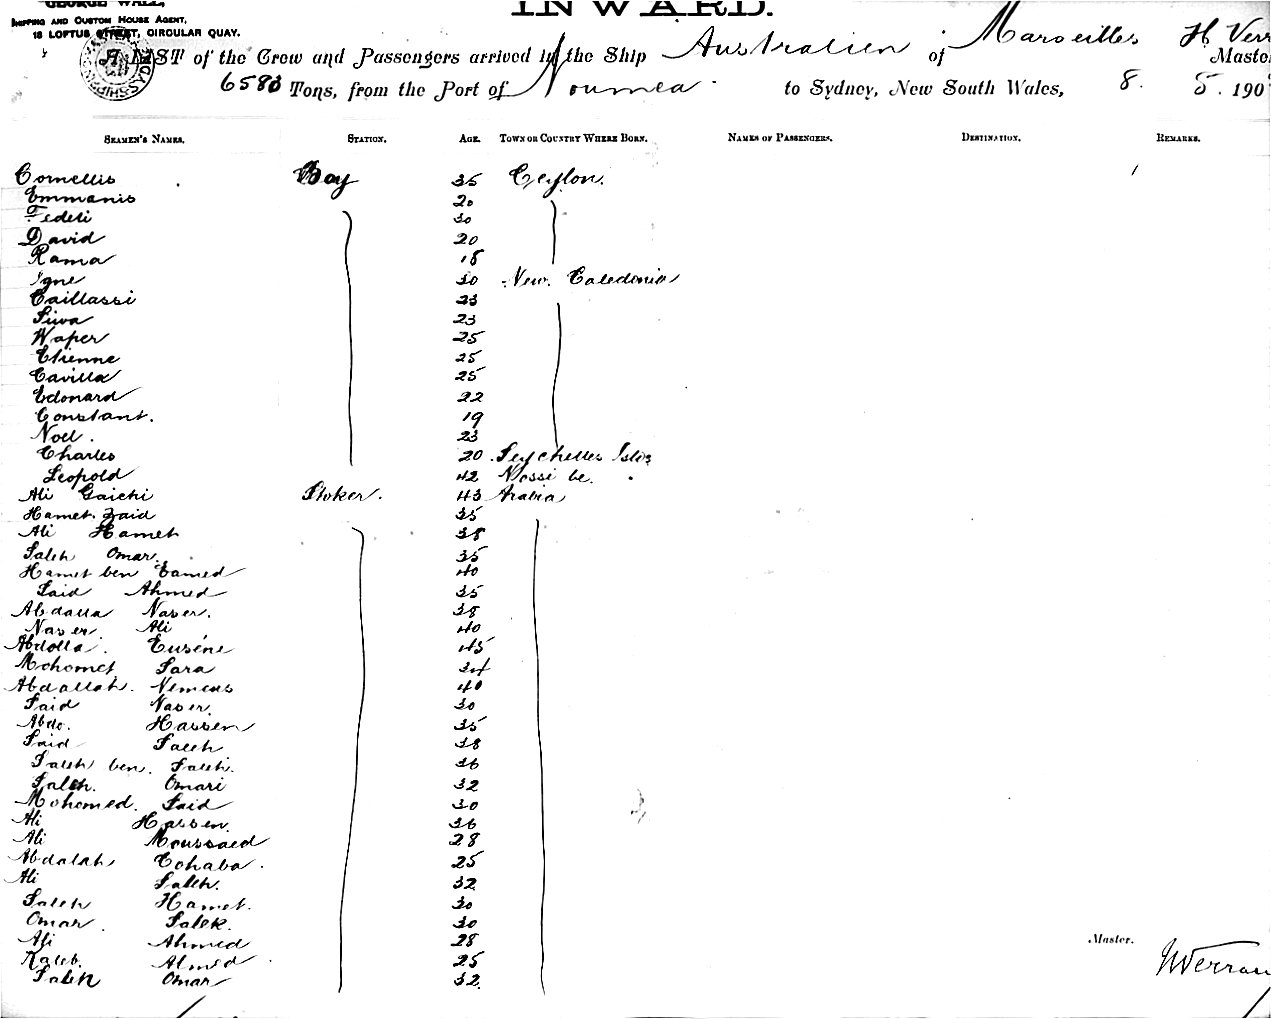 GEORGE WALL,
SHIPPING AND CUSTOM HOUSE AGENT,
18 LOFTUS STREET, CIRCULAR QUAY.
INWARD.
A LIST of the Crew and Passengers arrived in the Ship Australien of Marseilles H Verr Maste
6583 Tons, from the Port of Noumea to Sydney, New South Wales, 8. 5. 190
SEAMEN'S NAMES. STATION. AGE. TOWN OR COUNTRY WHERE BORN. NAMES OF PASSENGERS. DESTINATION. REMARKS.
Cornellis Boy 35 Ceylon.
Emmanis 20
Fedeli 30
David 20
Rama 18
Igne 30 New Caledonia
Caillassi 23
Siwa 23
Waper 25
Etienne 25
Cavilla 25
Edonard 22
Constant. 19
Noel. 23
Charles 20 Seychelles Isles
Leopold 42 Nossi be.
Ali Gaichi Stoker. 43 Arabia
Hamet Zaid 35
Ali Hamet 38
Saleh Omar. 35
Hamet ben Eamed 40
Said Ahmed 35
Abdalla Naser. 38
Naser. Ali 40
Abdolla. Euséne 45
Mohomet Sara 34
Abdallah. Nemeus 40
Said Naser. 30
Abdo. Hassen 35
Said Saleh 38
Saleh ben. Saleh. 36
Saleh. Omari 32
Mohomed. Said 30
Ali Hassen. 36
Ali Moussaed 28
Abdalah Cohaba. 25
Ali Saleh. 32
Saleh Hamet. 30
Omar. Salek. 30
Ali Ahmed 28
Kaleb. Almed 25
Saleh Omar 32
Master.